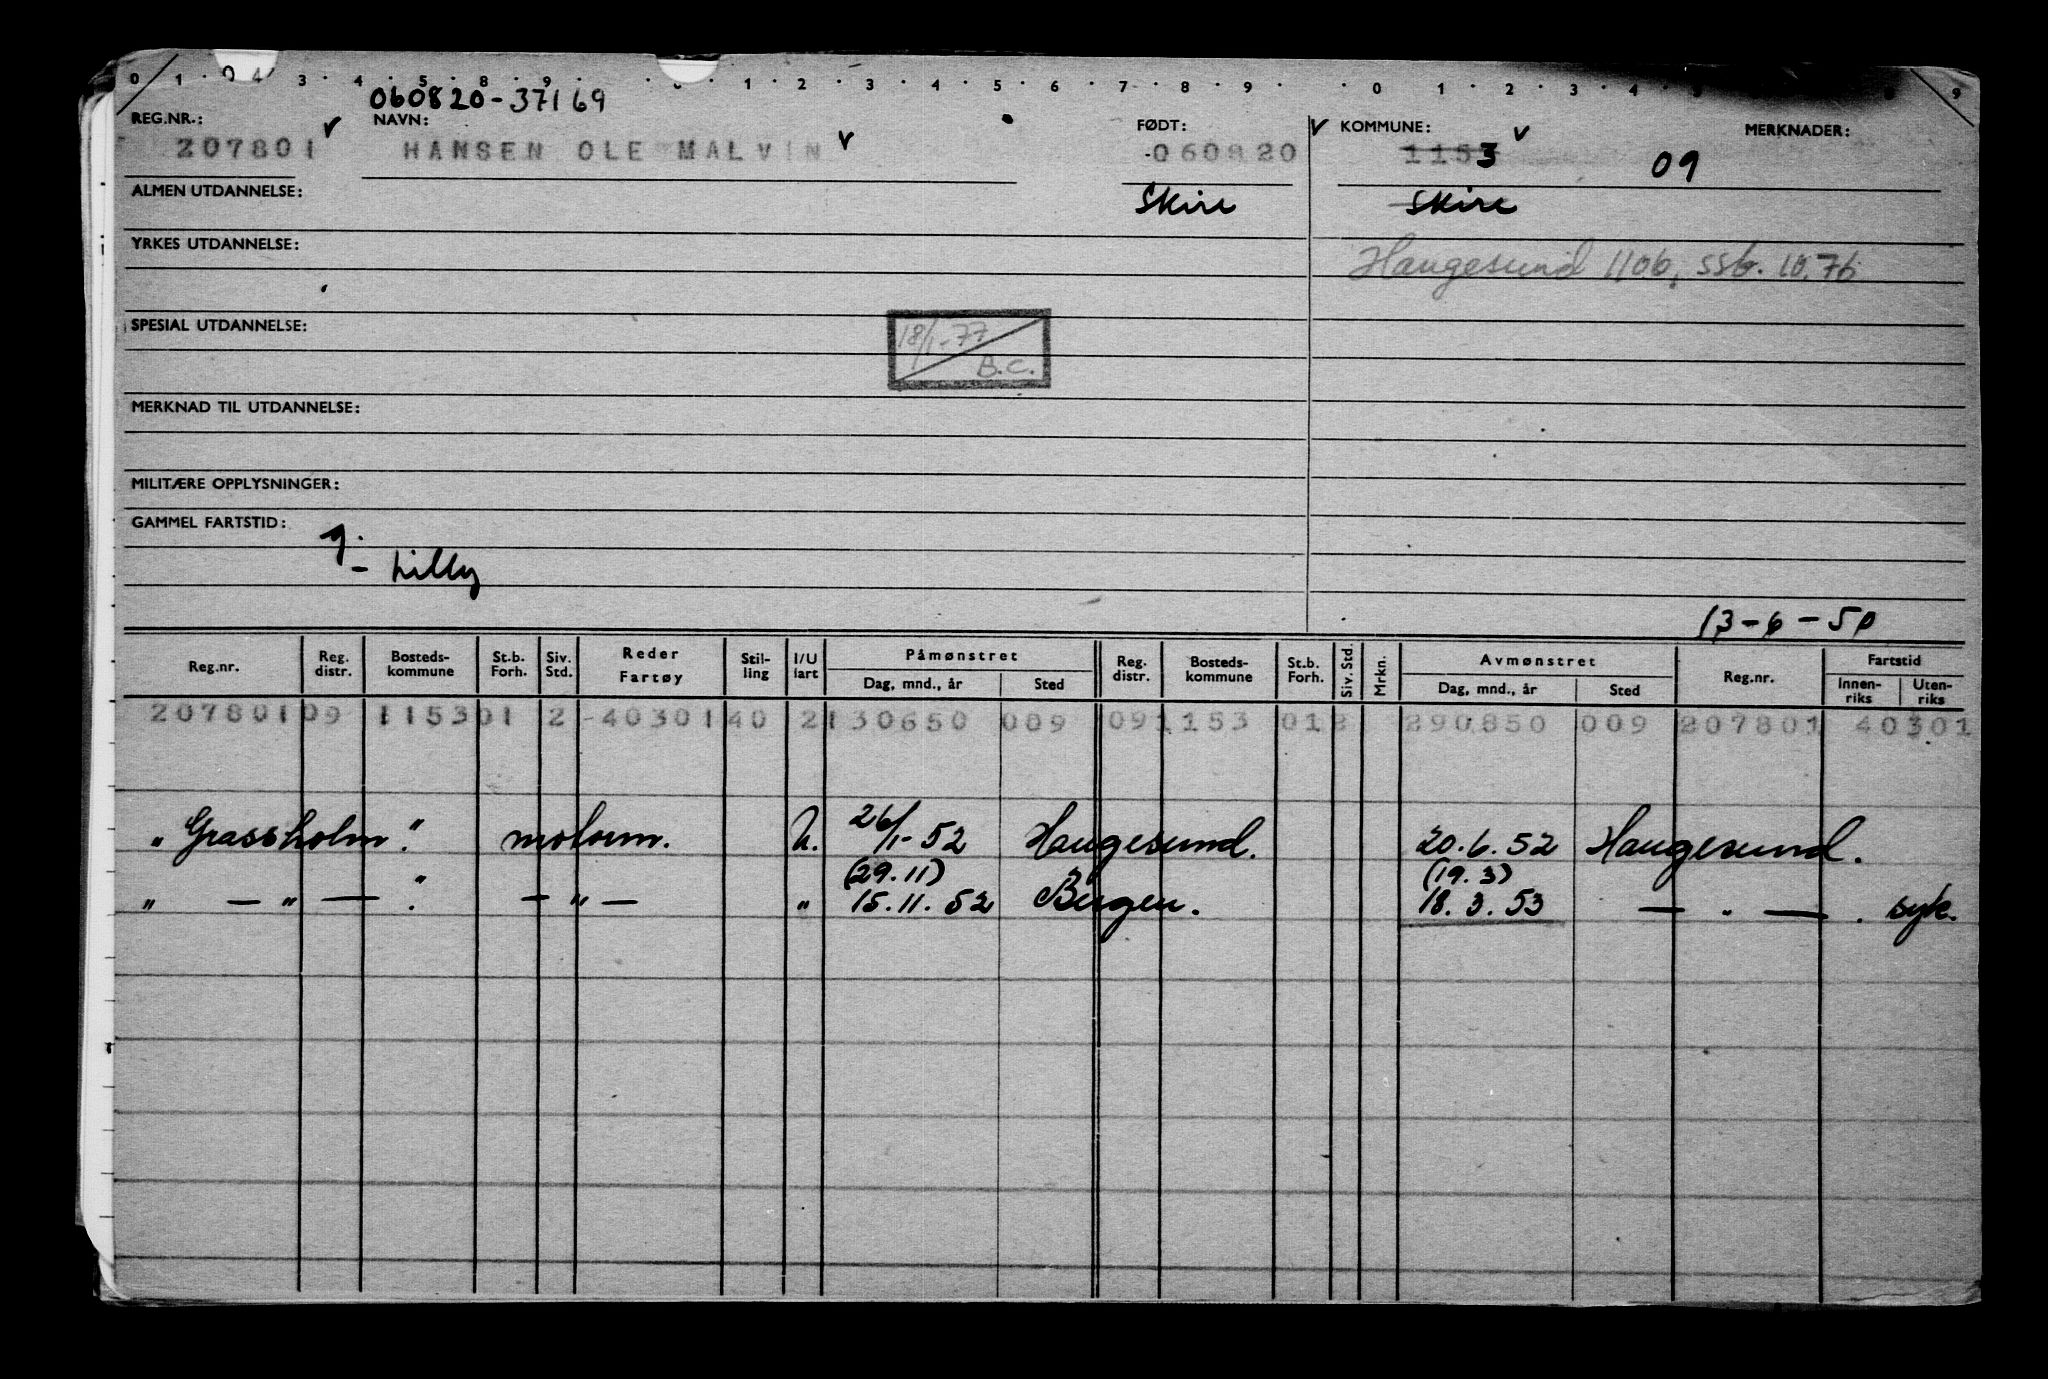 0 1 2 4 3 4 5 8 9 1 2 3 4 5 6 7 8 9 0 1 2 3 4 9
060820-37169
REG.NR.: NAVN: FØDT: KOMMUNE: MERKNADER:
207801 HANSEN OLE MALVIN 060820 1153 09
ALMEN UTDANNELSE: Skire Skire
YRKES UTDANNELSE:
Haugesund 1106, ssb. 10.76
SPESIAL UTDANNELSE:
18/1-77
B.C.
MERKNAD TIL UTDANNELSE:
MILITÆRE OPPLYSNINGER:
GAMMEL FARTSTID:
g.
- Lilly
13-6-50
Reg.nr. Reg. distr. Bosteds-kommune St.b. Forh. Siv. Std. Reder Fartøy Stil-ling I/U fart Påmønstret Dag, mnd., år Sted Reg. distr. Bosteds-kommune St.b. Forh. Siv. Std. Mrkn. Avmønstret Dag, mnd., år Sted Reg.nr. Fartstid Innen-riks Uten-riks
207801 09 1153 01 2 -40301 40 2 130650 009 09 1153 01 2 290850 009 207801 40301
"Grassholm." motorm. U. 26/1-52 Haugesund. 20.6.52 Haugesund.
(29.11) (19.3)
" — " — " . — " — " 15.11.52 Bergen. 18.3.53 — " — . syk.